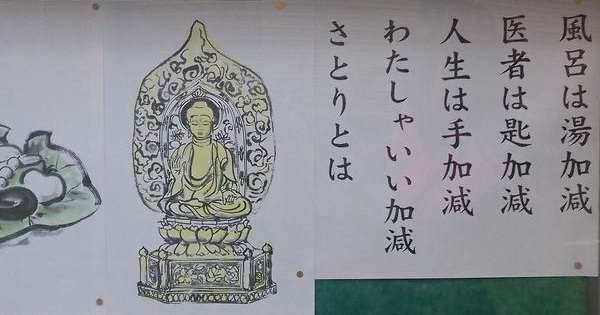 風呂は湯加減
医者は匙加減
人生は手加減
わたしゃいい加減
さとりとは